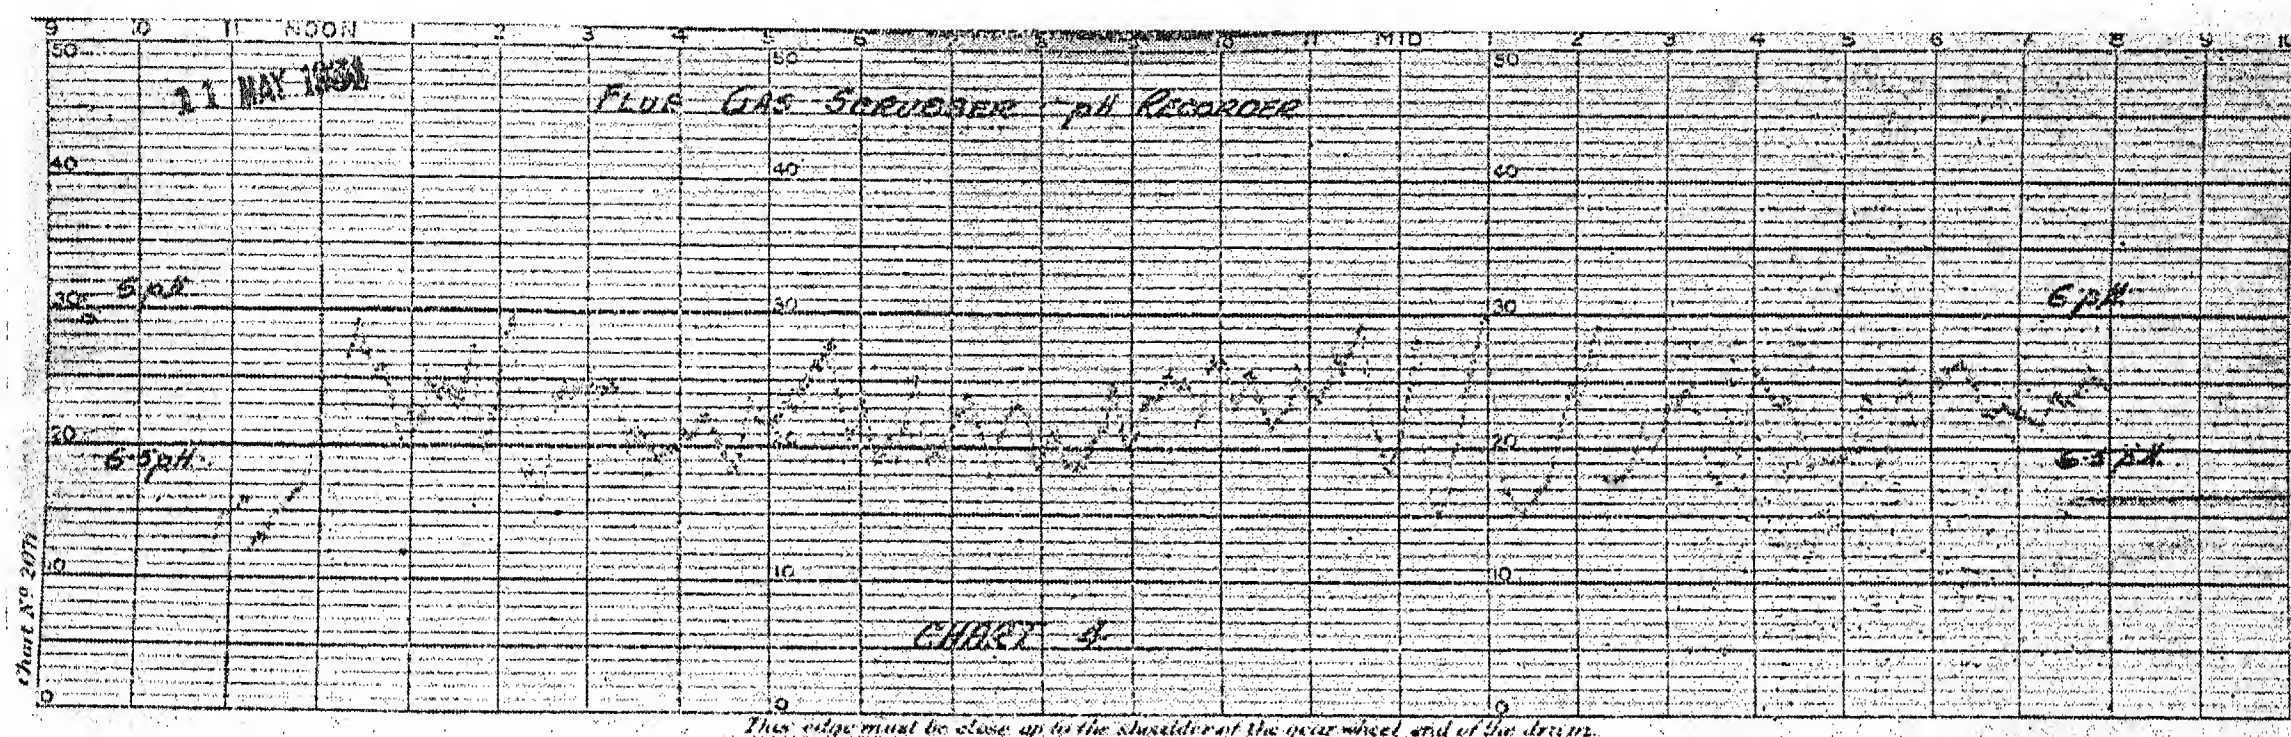 9 10 11 NOON 1 2 3 4 5 6 7 8 9 10 11 MID 1 2 3 4 5 6 7 8 9 10
50 50 50
11 MAY
FLUE GAS SCRUBBER pH RECORDER
40 40 40
6 pH 6 pH
30 30 30
20 20 20
6.5 pH 6.5 pH
10 10 10
CHART 4
0 0 0
Chart No
This edge must be close up to the shoulder of the gear wheel end of the drum.